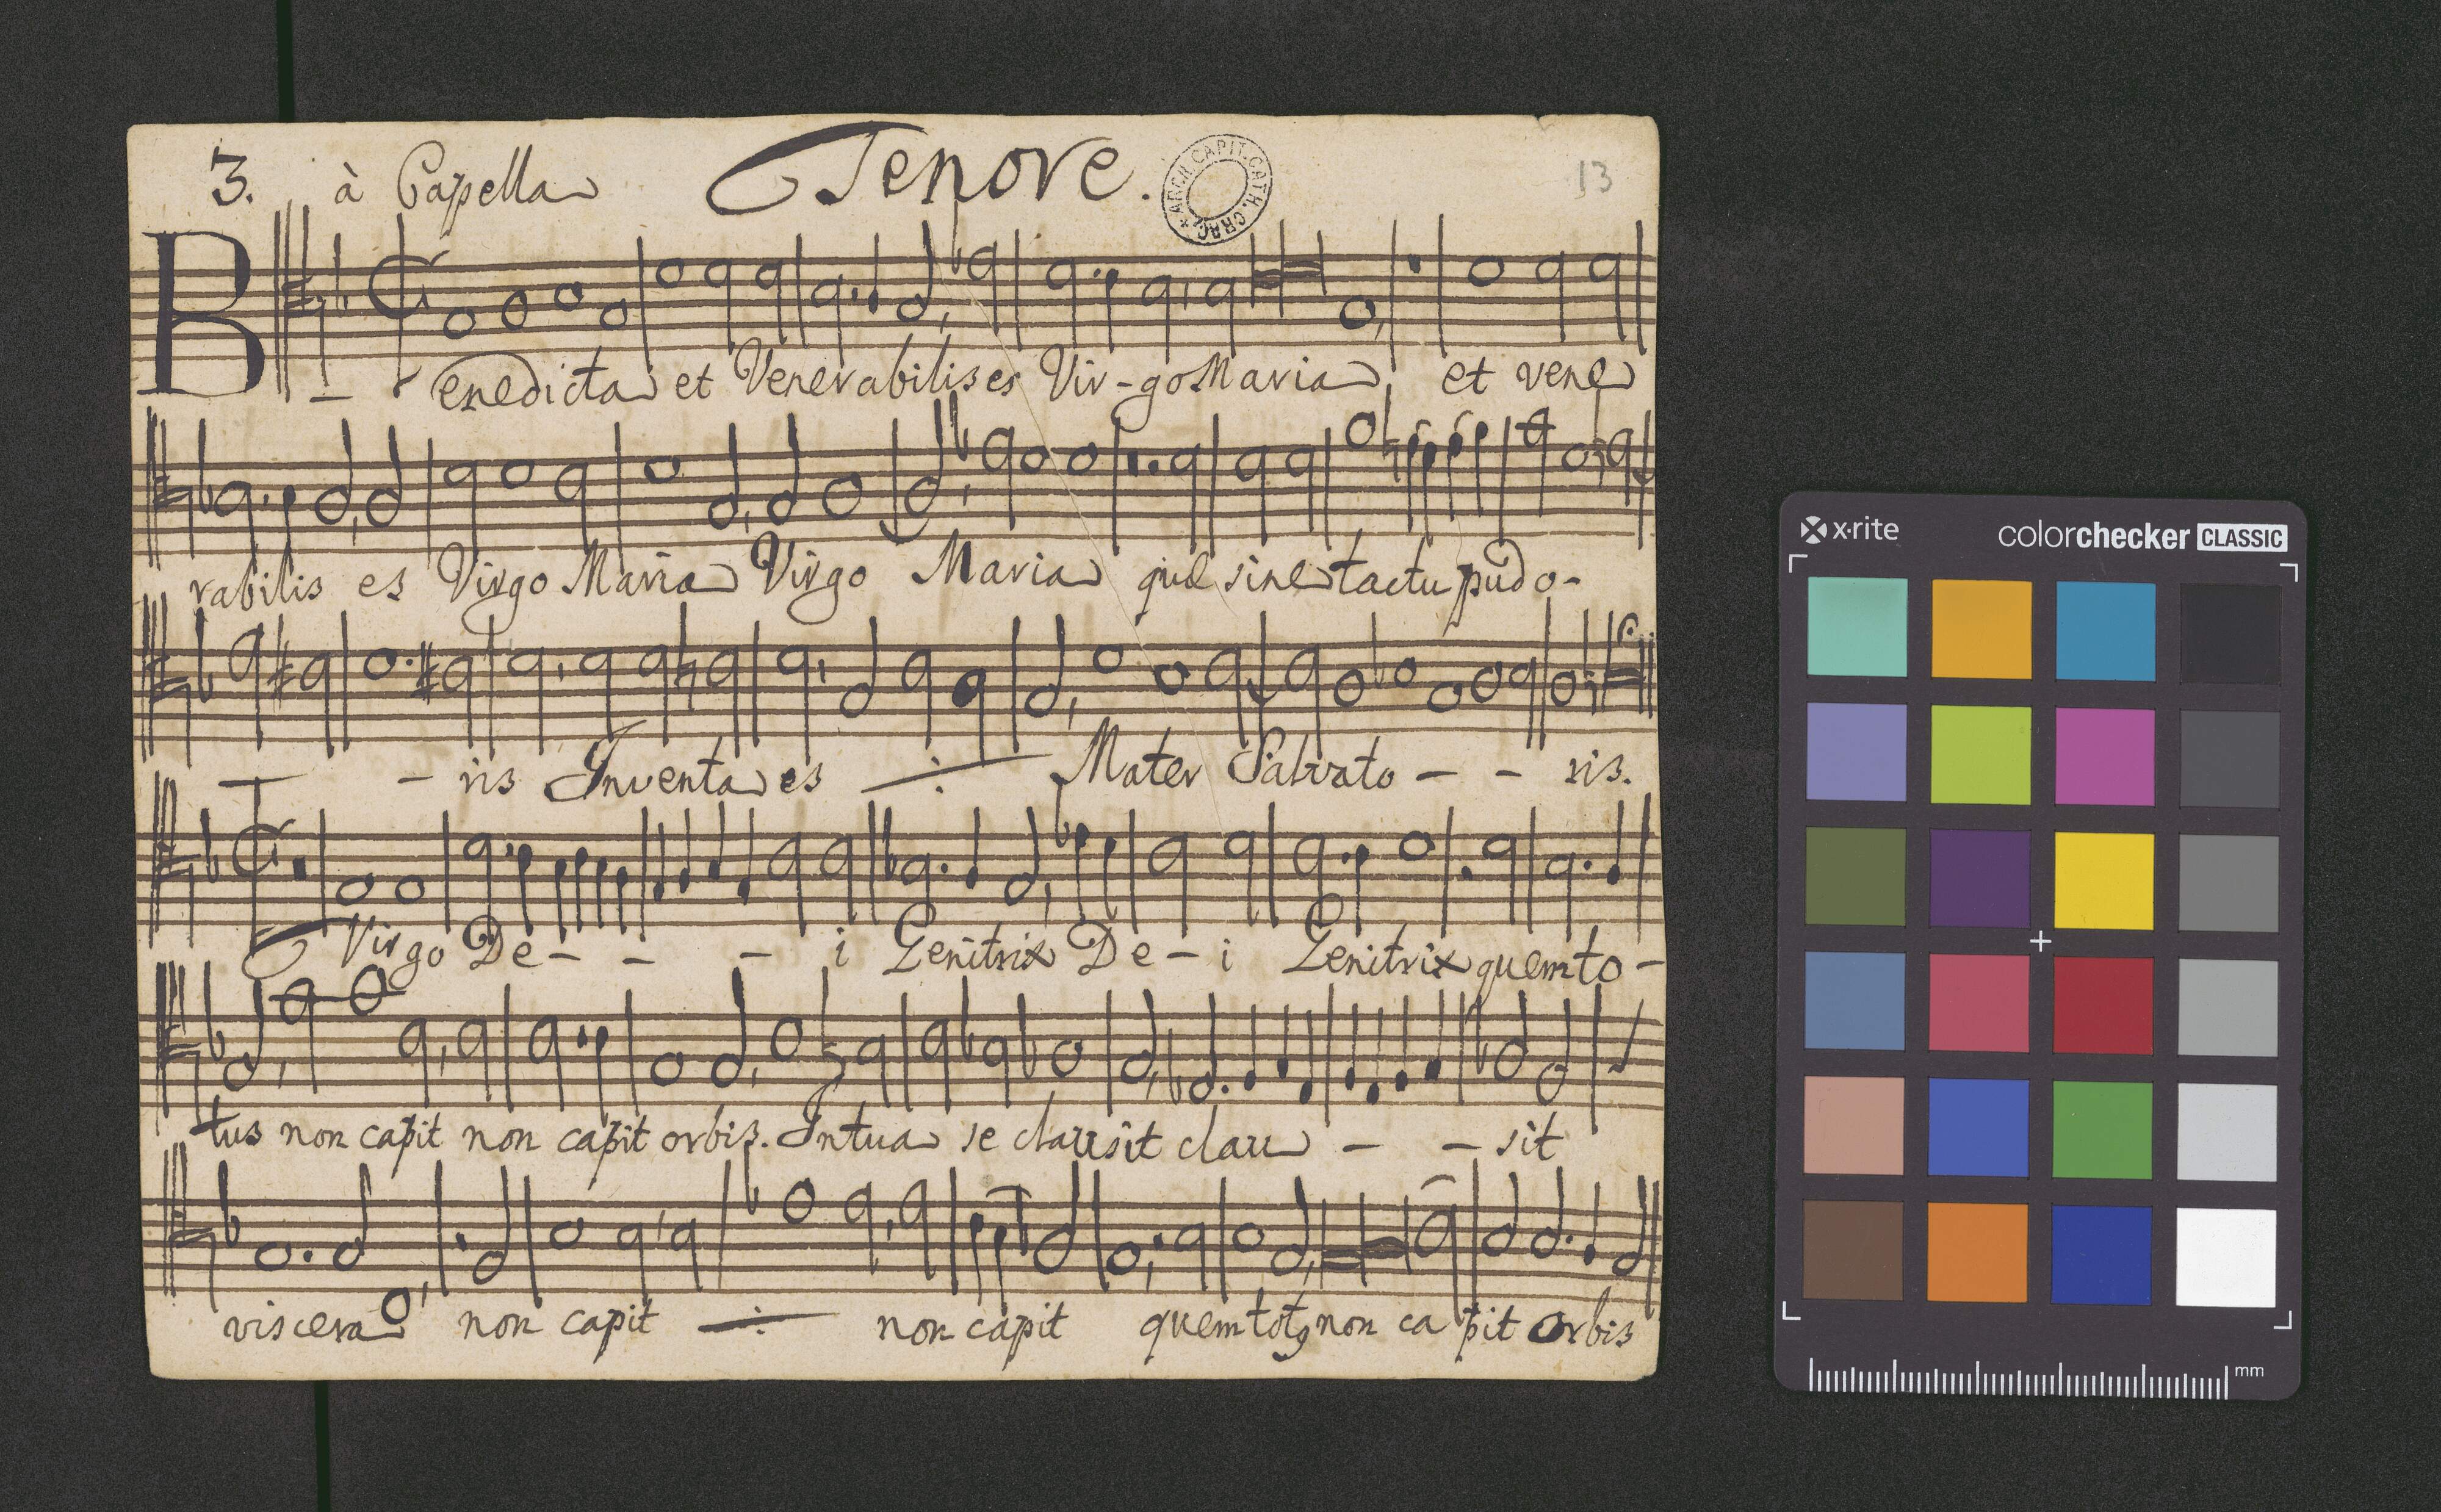 3. à Capella Tenore. 13
ARCH. CAPIT. CATH. CRAC.
Benedicta et Venerabilis es Vir-go Maria et vene
rabilis es Virgo Maria Virgo Maria quæ sine tactu pudo-
- - ris Inventa es ∴ Mater Salvato - - ris.
Virgo De - - - i Genitrix De - i Genitrix quem to -
tus non capit non capit orbis. In tua se clausit clau - - sit
viscera non capit ∴ non capit quem totꝰ non ca pit orbis
x-rite colorchecker CLASSIC
mm